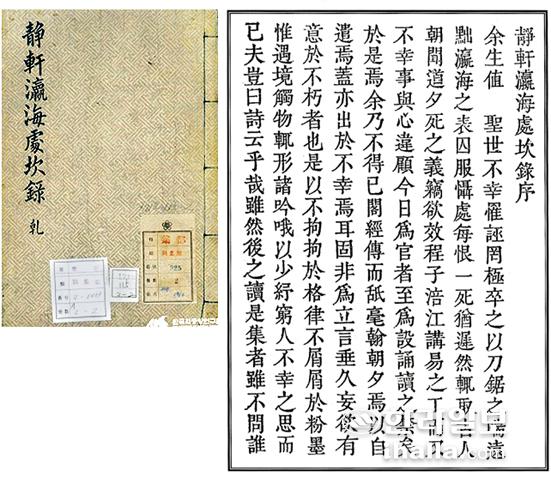 靜軒瀛海處坎錄 乾
靜軒瀛海處坎錄序
余生值 聖世不幸罹誣罔極卒之以刀鋸之喘遠
黜瀛海之表囚服懾處每恨一死猶遲然輒取古人
朝聞道夕死之義竊欲效程子涪江講易之工而又
不幸事與心違顧今日爲官者至爲設誦讀之禁矣
於是焉余乃不得已閣經傳而舐毫翰朝夕焉以自
遣焉蓋亦出於不幸焉耳固非爲立言垂久妄欲有
意於不朽者也是以不拘拘於格律不屑屑於粉墨
惟遇境觸物輒形諸吟哦以少紓窮人不幸之思而
已夫豈曰詩云乎哉雖然後之讀是集者雖不問誰
한라일보
ihalla.com